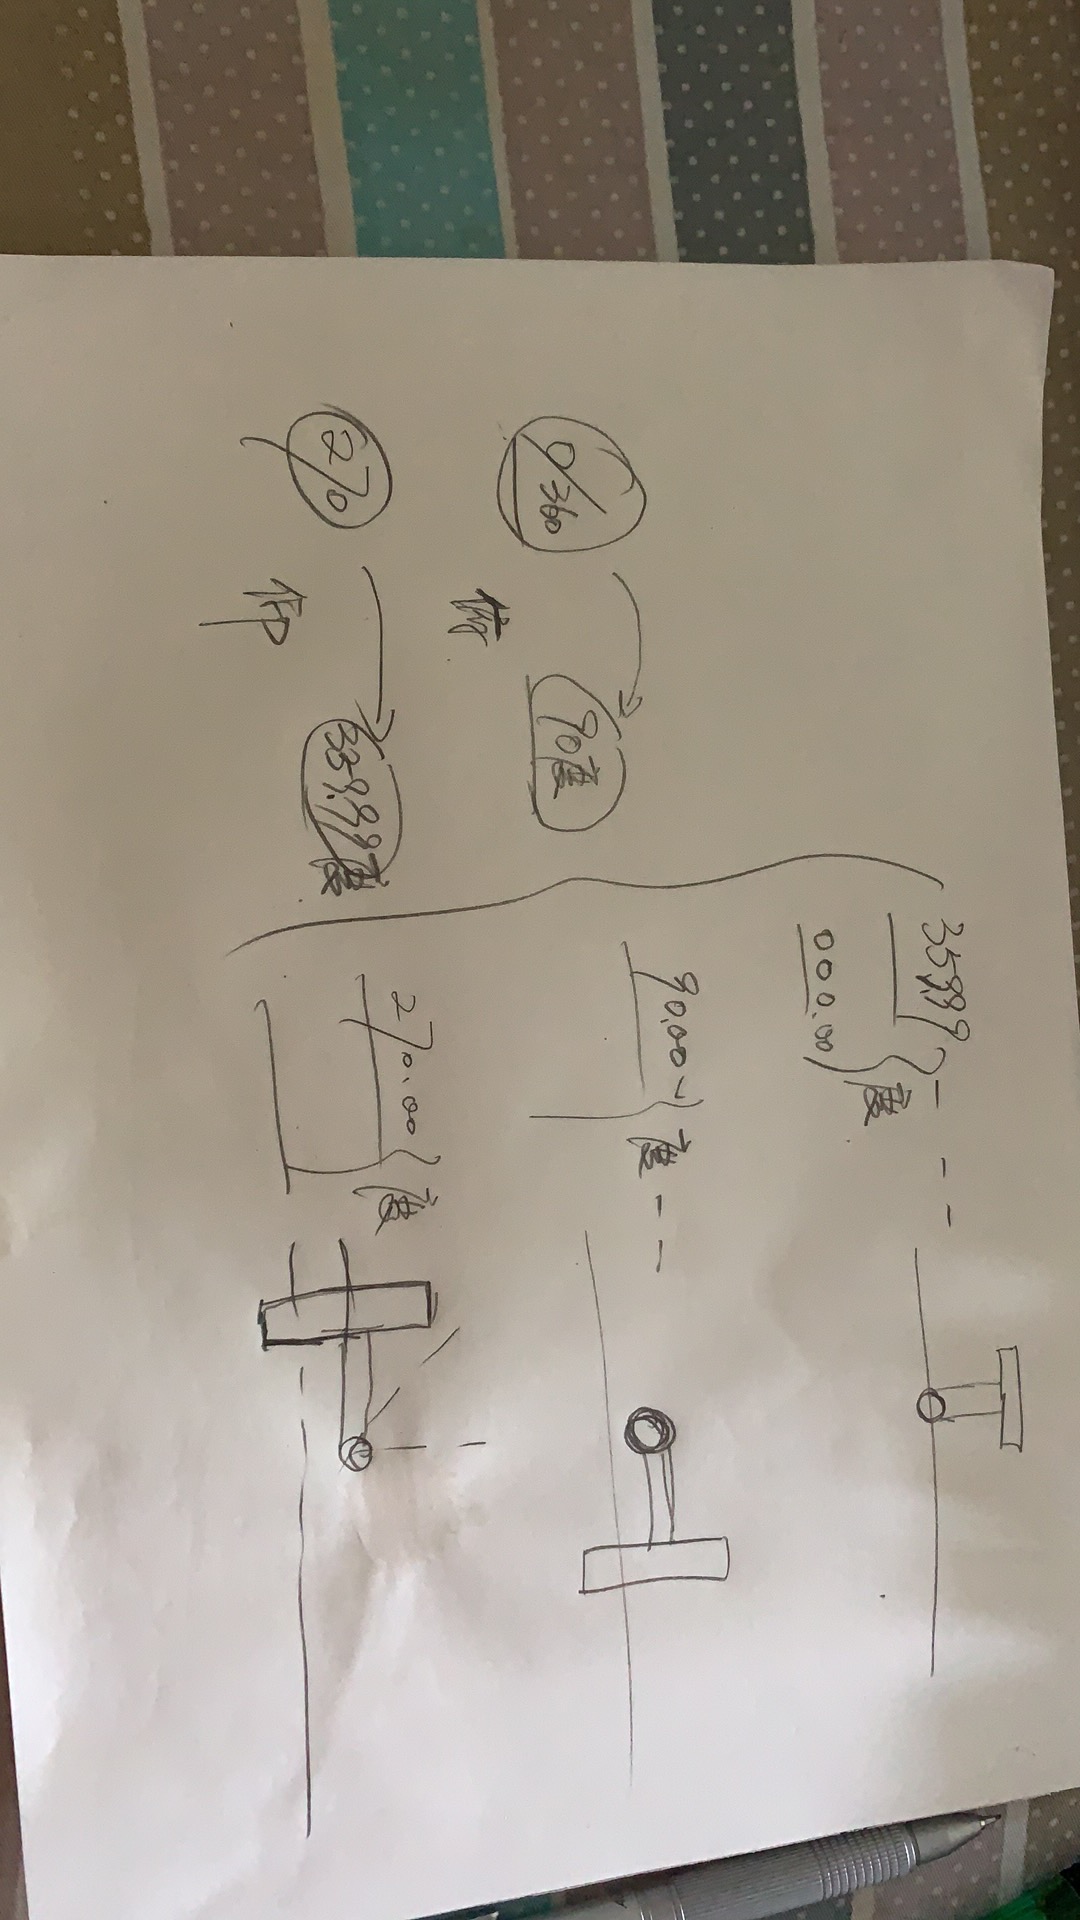 0/360
90度
俯
270
359.99度
仰
359.99
000.00
度
90.00度
270.00度